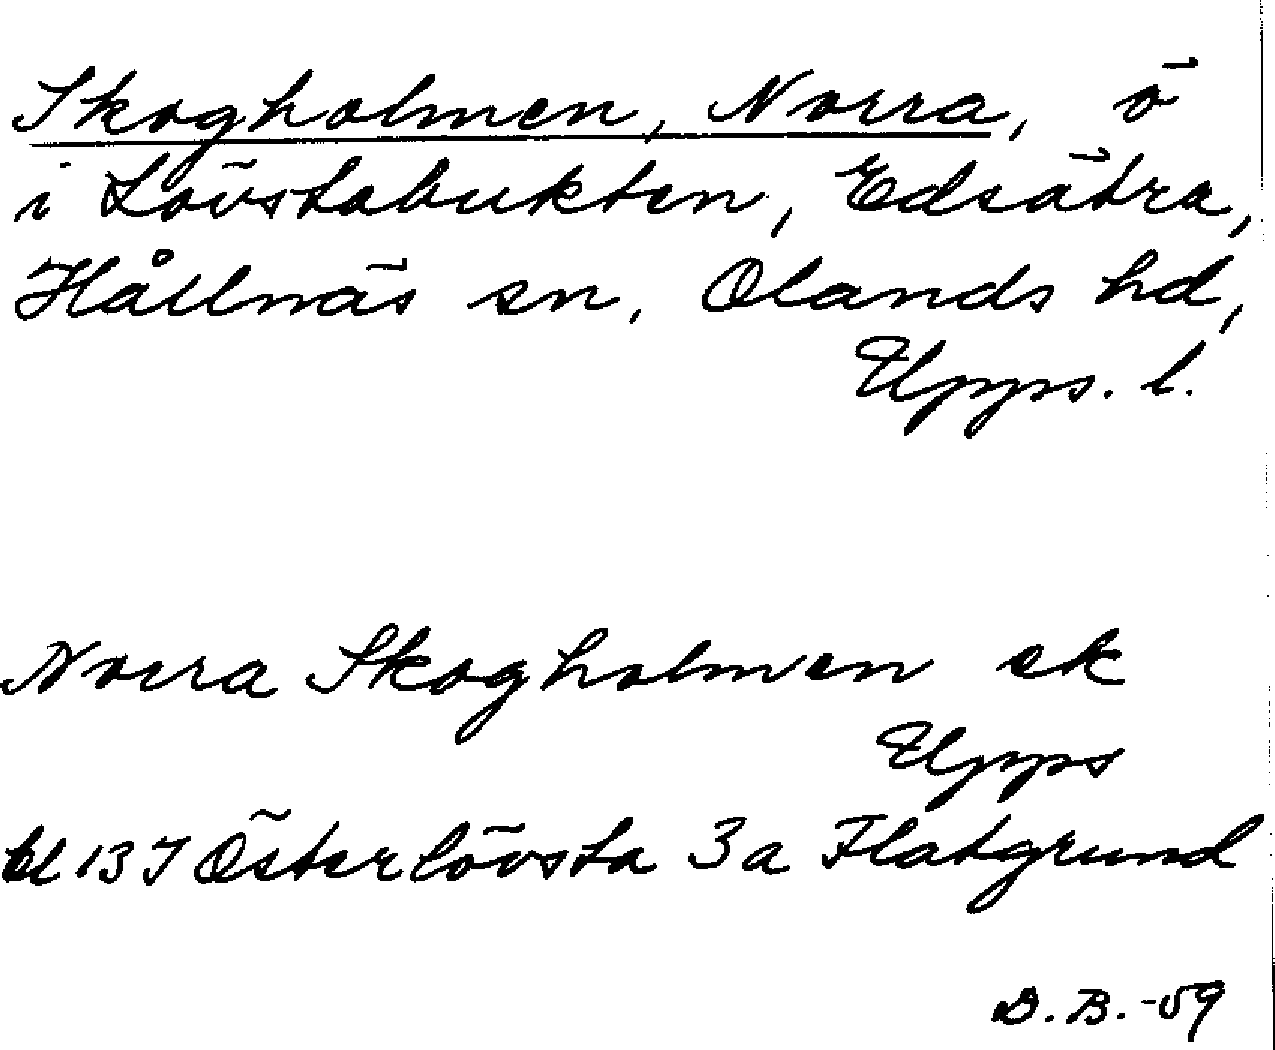 Skogholmen, Norra, ö
i Lövstabukten, Edsätra,
Hållnäs sn, Olands hd,
Upps. l.
Norra Skogholmen ek
Upps
bl 13 I Österlövsta 3a Flatgrund
D.B.-59